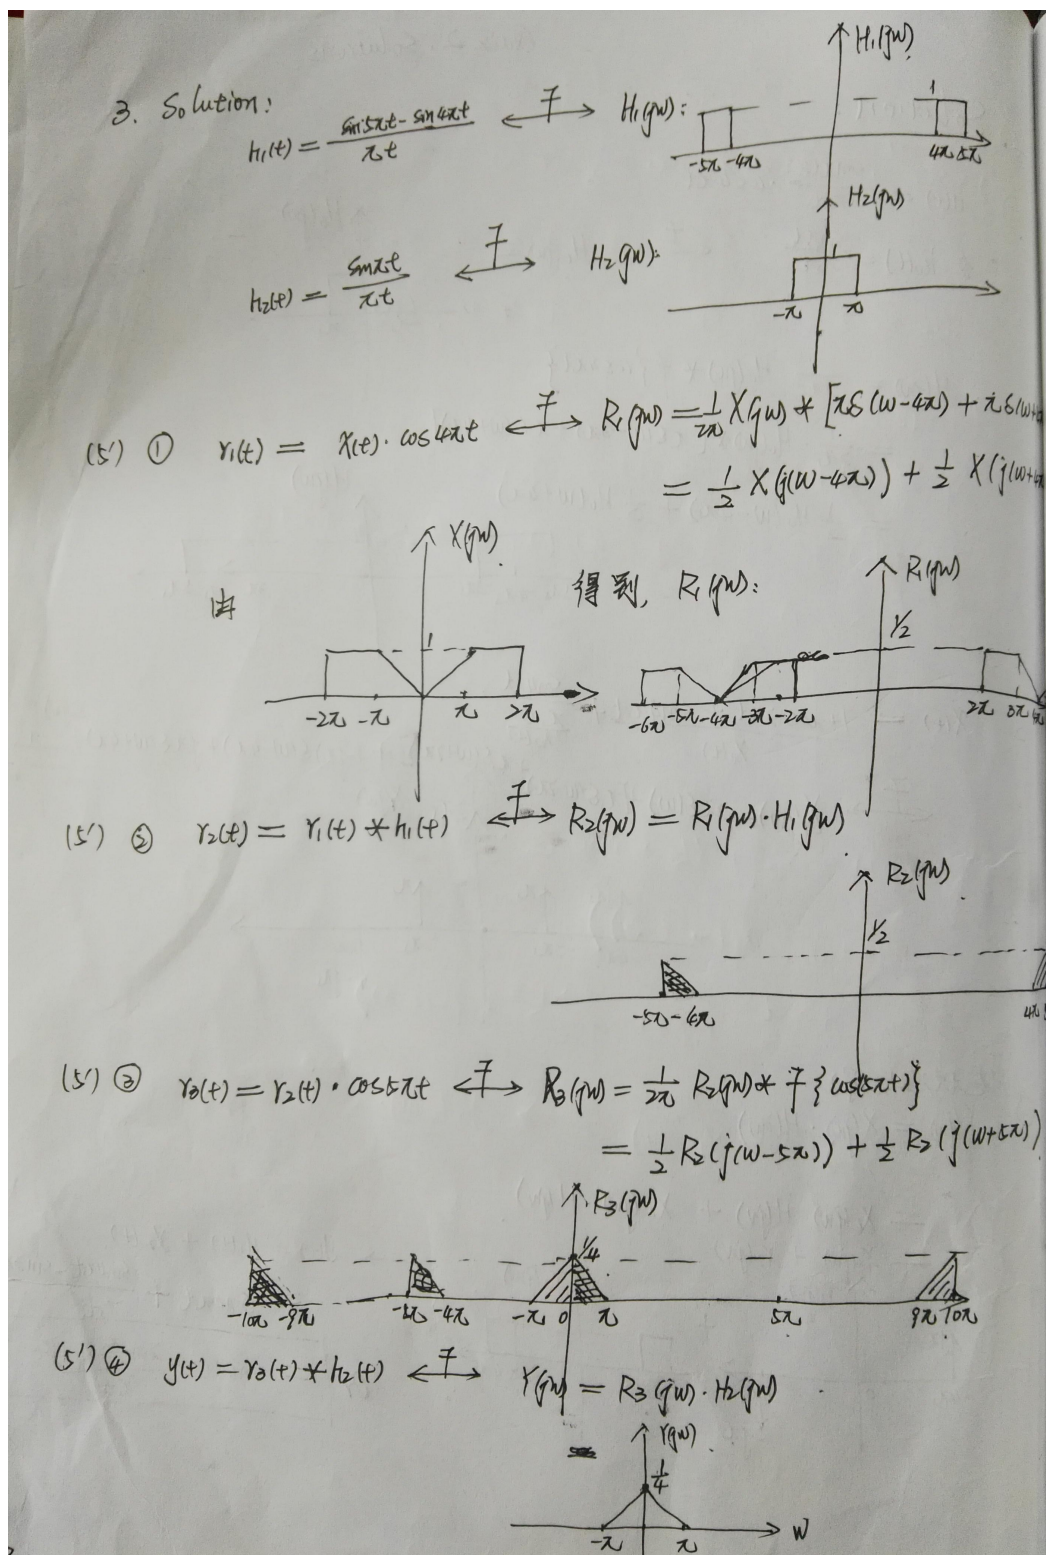 3. Solution:
h₁(t) = (sin5πt - sin4πt)/πt ⟷ℱ H₁(jw):
H₁(jw)
1
-5π -4π 4π 5π
h₂(t) = sinπt/πt ⟷ℱ H₂(jw):
H₂(jw)
1
-π π
(5') ① r₁(t) = x(t)·cos4πt ⟷ℱ R₁(jw) = 1/2π X(jw) * [πδ(w-4π) + πδ(w+
= 1/2 X(j(w-4π)) + 1/2 X(j(w+4π
由
X(jw)
1
-2π -π π 2π
得到, R₁(jw):
R₁(jw)
1/2
-6π -5π -4π -3π -2π 2π 3π 4π
(5') ② r₂(t) = r₁(t) * h₁(t) ⟷ℱ R₂(jw) = R₁(jw)·H₁(jw)
R₂(jw)
1/2
-5π -4π 4π
(5') ③ r₃(t) = r₂(t)·cos5πt ⟷ℱ R₃(jw) = 1/2π R₂(jw) * ℱ{cos(5πt)}
= 1/2 R₂(j(w-5π)) + 1/2 R₂(j(w+5π))
R₃(jw)
1/4
-10π -9π -5π -4π -π 0 π 5π 9π 10π
(5') ④ y(t) = r₃(t) * h₂(t) ⟷ℱ Y(jw) = R₃(jw)·H₂(jw)
Y(jw)
1/4
-π π W